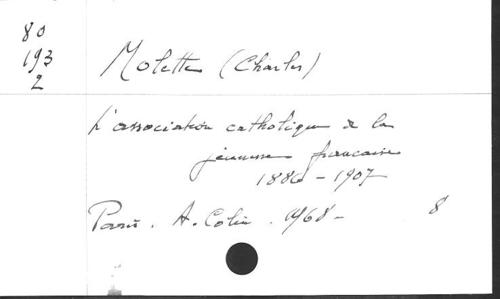 80
193
2
Molette (Charles)
L'association catholique de la
jeunesse française
1886 - 1907
Paris. A. Colin. 1968 -
8